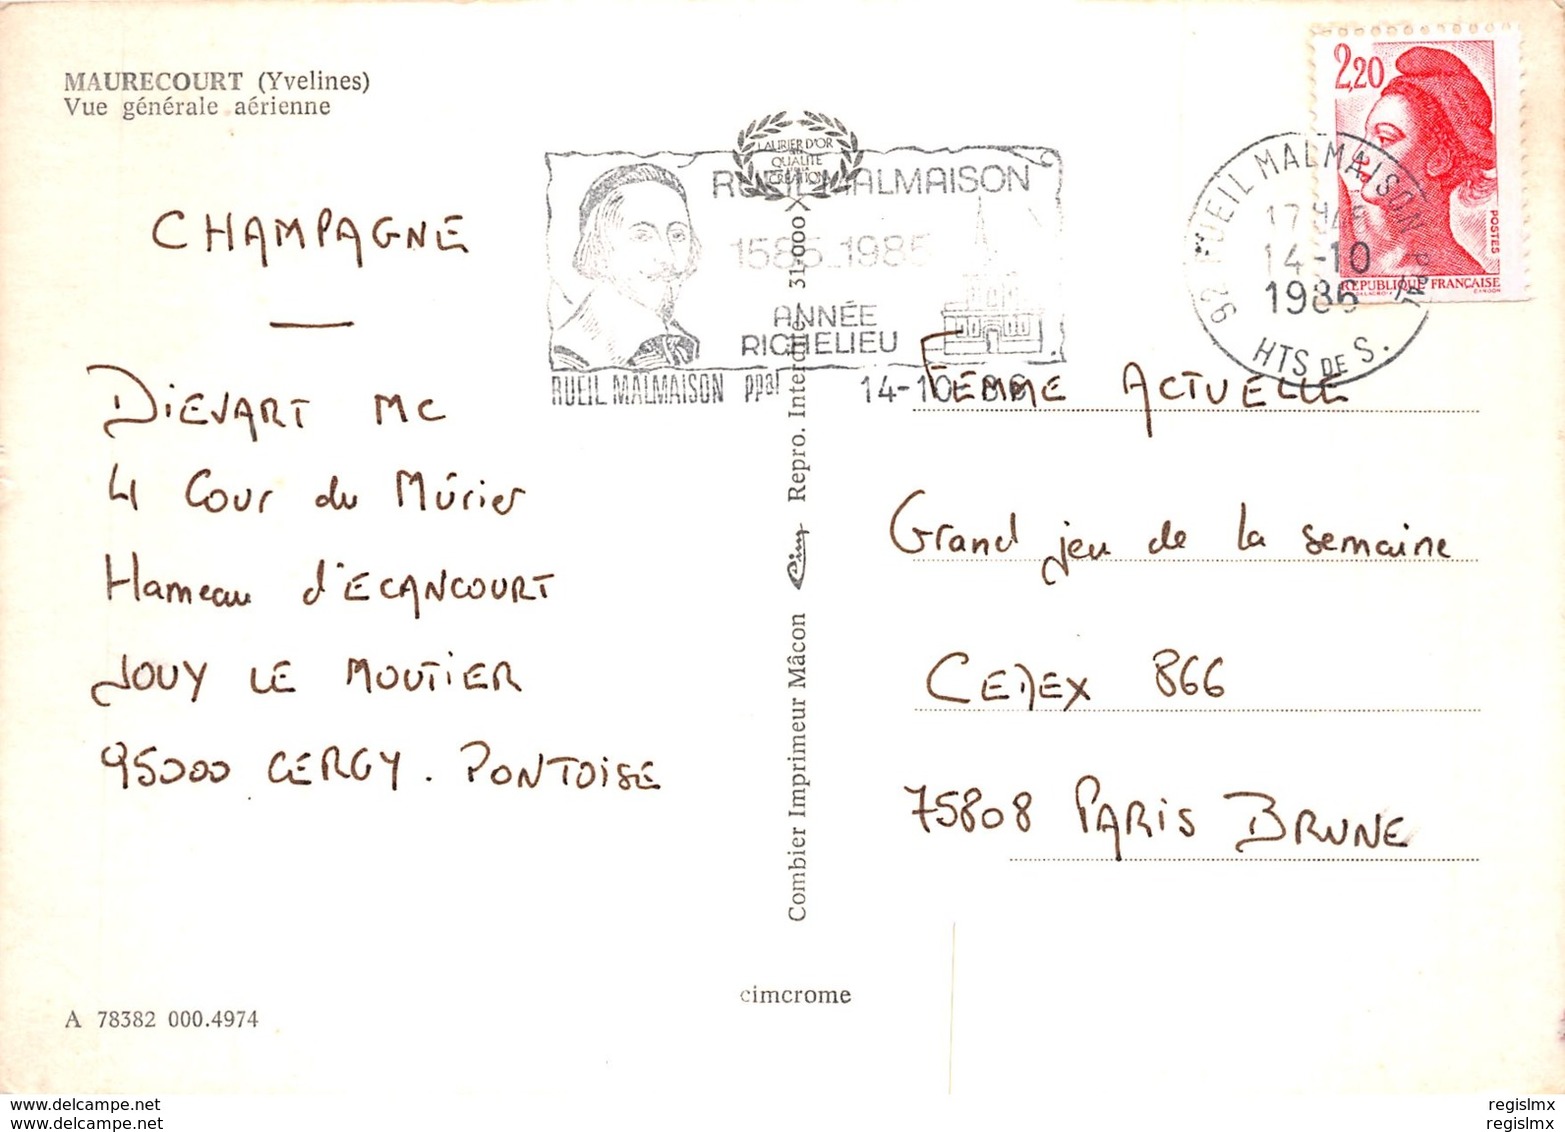 MAURECOURT (Yvelines)
Vue générale aérienne
CHAMPAGNE
DiEVART MC
4 Cour du Mûrier
Hameau d'ECANCOURT
JOUY LE MOUTIER
95000 CERGY. PONTOISE
A 78382 000.4974
LAURIER D'OR
QUALITÉ
CRÉATION
RUEIL MALMAISON
1585_1985
ANNÉE
RICHELIEU
RUEIL MALMAISON ppal 14-10 86
Combier Imprimeur Mâcon Cim Repro. Interdite 31 000
cimcrome
2,20
POSTES
REPUBLIQUE FRANÇAISE
92 RUEIL MALMAISON PPAL
17H
14-10
1986
HTS DE S.
FEMME ACTUELLE
Grand jeu de la semaine
CEDEX 866
75808 PARIS BRUNE
www.delcampe.com
www.delcampe.net
regislmx
regislmx